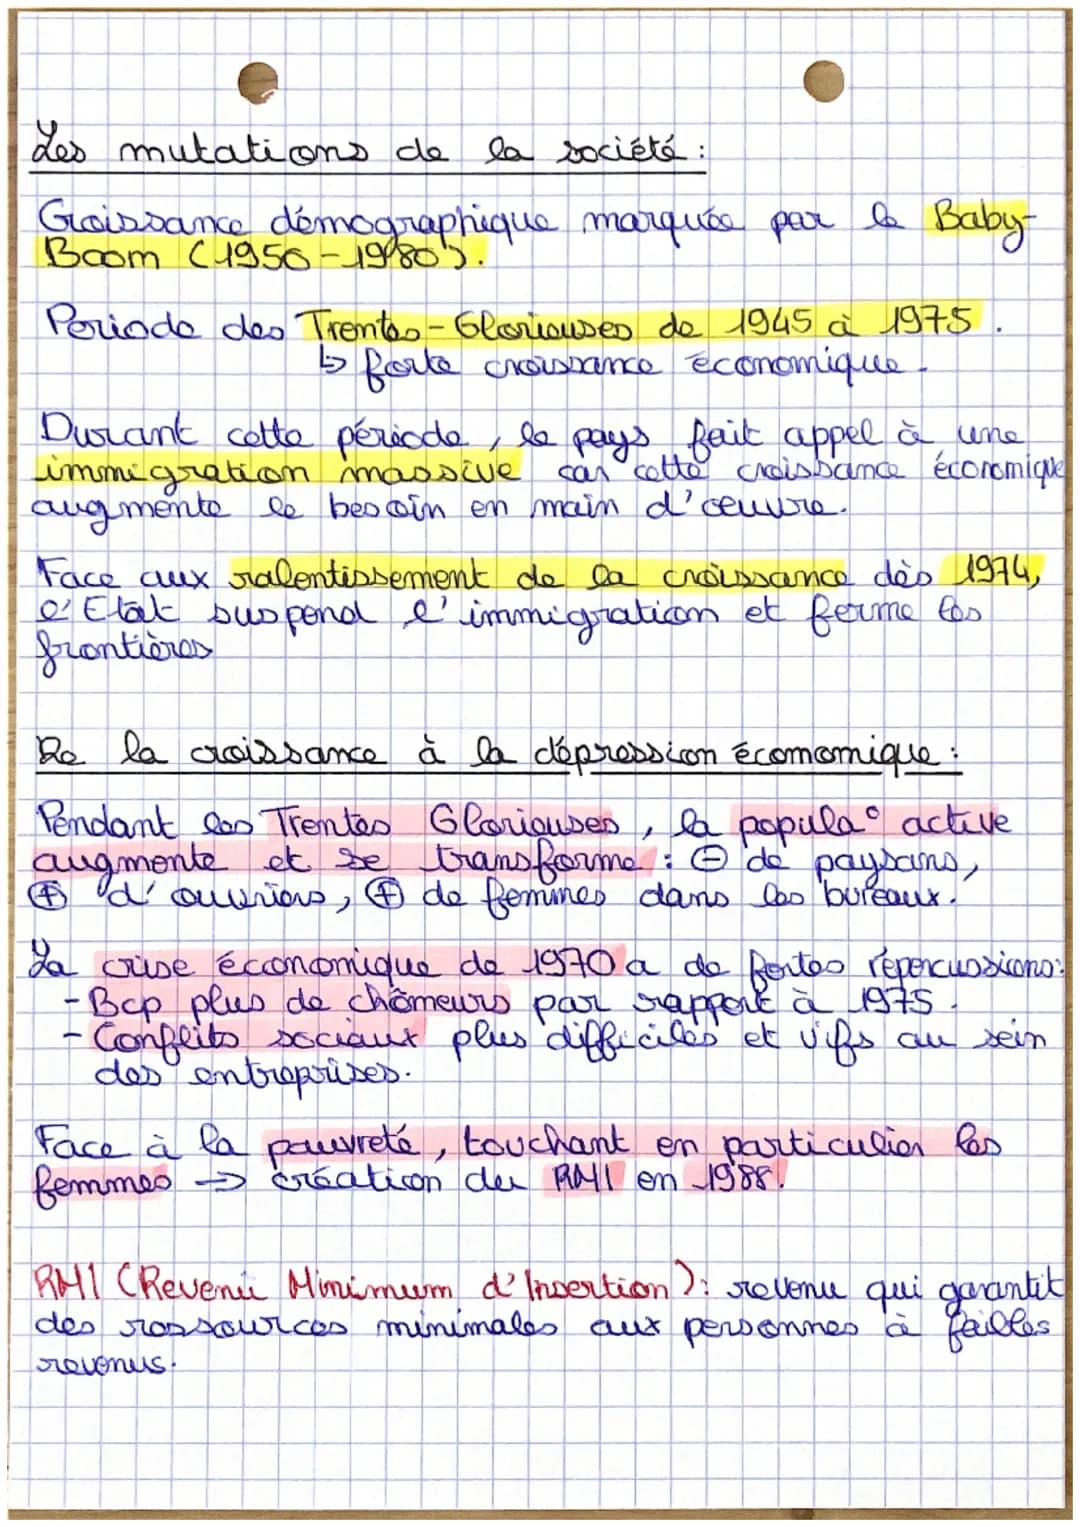 Les mutations de la société :
Croissance démographique marquée par le Baby-
Boom (1950-1980).
Periode des Trentes-Glorieuses de 1945 à 1975.
↳ forte croissance économique.
Durant cette période, le pays fait appel à une
immigration massive car cette croissance économique
augmente le besoin en main d'œuvre.
Face aux ralentissement de la croissance dès 1974,
l'Etat suspend l'immigration et ferme les
frontières
De la croissance à la dépression écomomique :
Pendant les Trentes Glorieuses, la popula° active
augmente et se transforme : ⊖ de paysans,
⊕ d'ouvriers, ⊕ de femmes dans les bureaux.
La crise économique de 1970 a de fortes répercussions:
- Bcp plus de chômeurs par rapport à 1975.
- Conflits sociaux plus difficiles et vifs au sein
des entreprises.
Face à la pauvreté, touchant en particulier les
femmes → création du RMI en 1988.
RMI (Revenu Minimum d'Insertion): revenu qui garantit
des ressources minimales aux personnes à faibles
revenus.